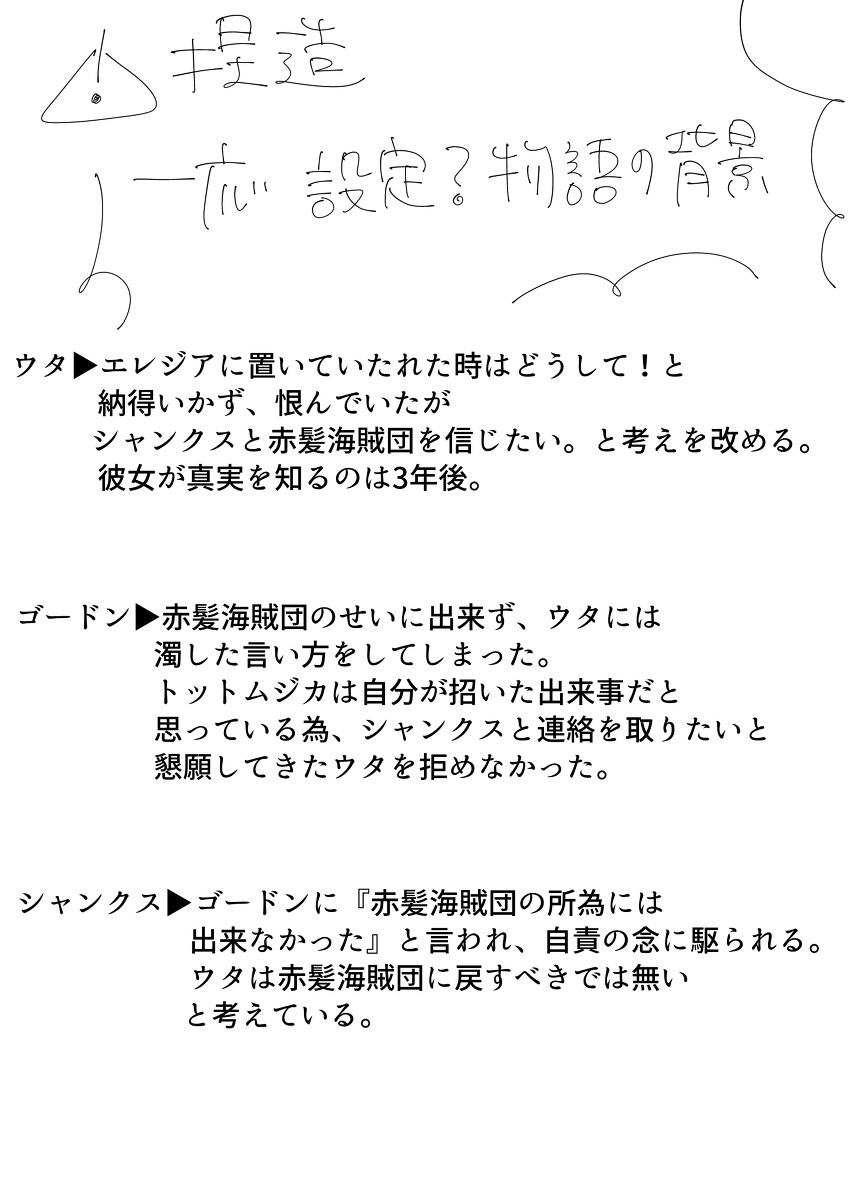 捏造
一応 設定?物語の背景
ウタ▶エレジアに置いていたれた時はどうして!と
納得いかず、恨んでいたが
シャンクスと赤髪海賊団を信じたい。と考えを改める。
彼女が真実を知るのは3年後。
ゴードン▶赤髪海賊団のせいに出来ず、ウタには
濁した言い方をしてしまった。
トットムジカは自分が招いた出来事だと
思っている為、シャンクスと連絡を取りたいと
懇願してきたウタを拒めなかった。
シャンクス▶ゴードンに『赤髪海賊団の所為には
出来なかった』と言われ、自責の念に駆られる。
ウタは赤髪海賊団に戻すべきでは無い
と考えている。